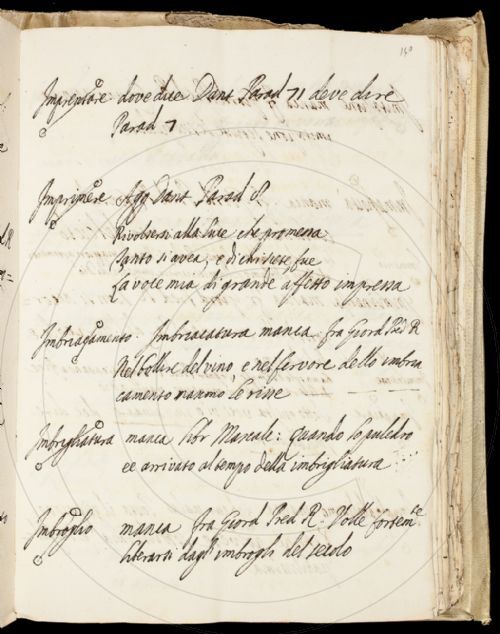 150
Impreg.re dove dice Dant. Parad 71 deve dire
Parad 7
Imprim.re Agg Dant Parad 8.
Rivolsersi alla luce che promessa
Tanto s'avea, e di chi siete fue
La voce mia di grande affetto impressa
Imbriag.amento. Imbriacatura manca fra Giord Pred R
Nel bollire del vino, e nel fervore dello imbria
camento nascono le risse
Imbrigliatura manca libr Mascalc: Quando lo puledro
è arrivato al tempo della imbrigliatura
Imbroglio manca fra Giord Pred R. Volle fortem.te
liberarsi dagli imbrogli del secolo